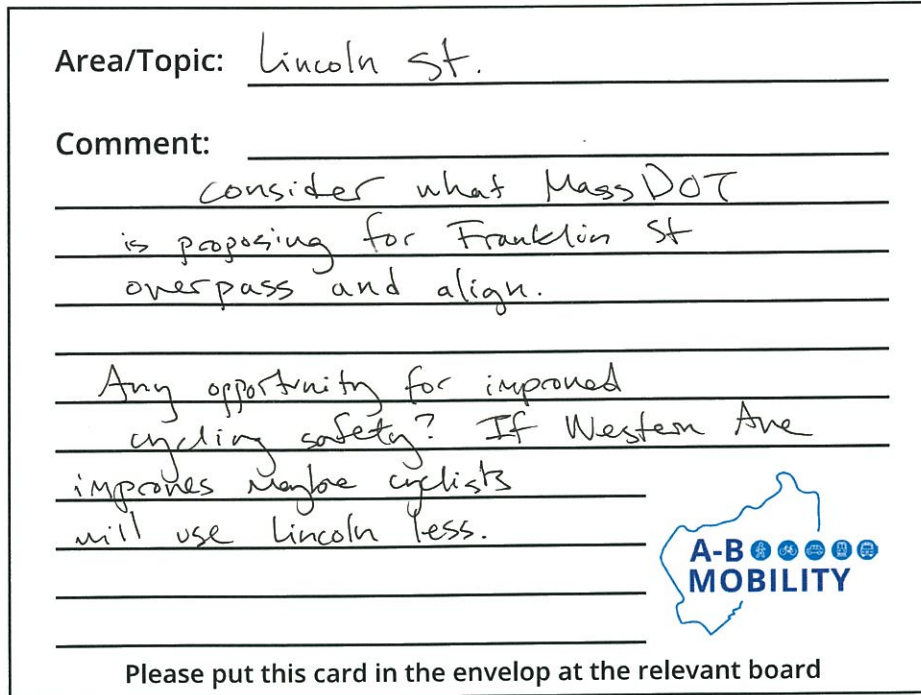 Area/Topic: Lincoln St.
Comment:
consider what MassDOT
is proposing for Franklin St
overpass and align.
Any opportunity for improved
cycling safety? If Western Ave
improves Maybe cyclists
will use Lincoln less.
A-B
MOBILITY
Please put this card in the envelop at the relevant board